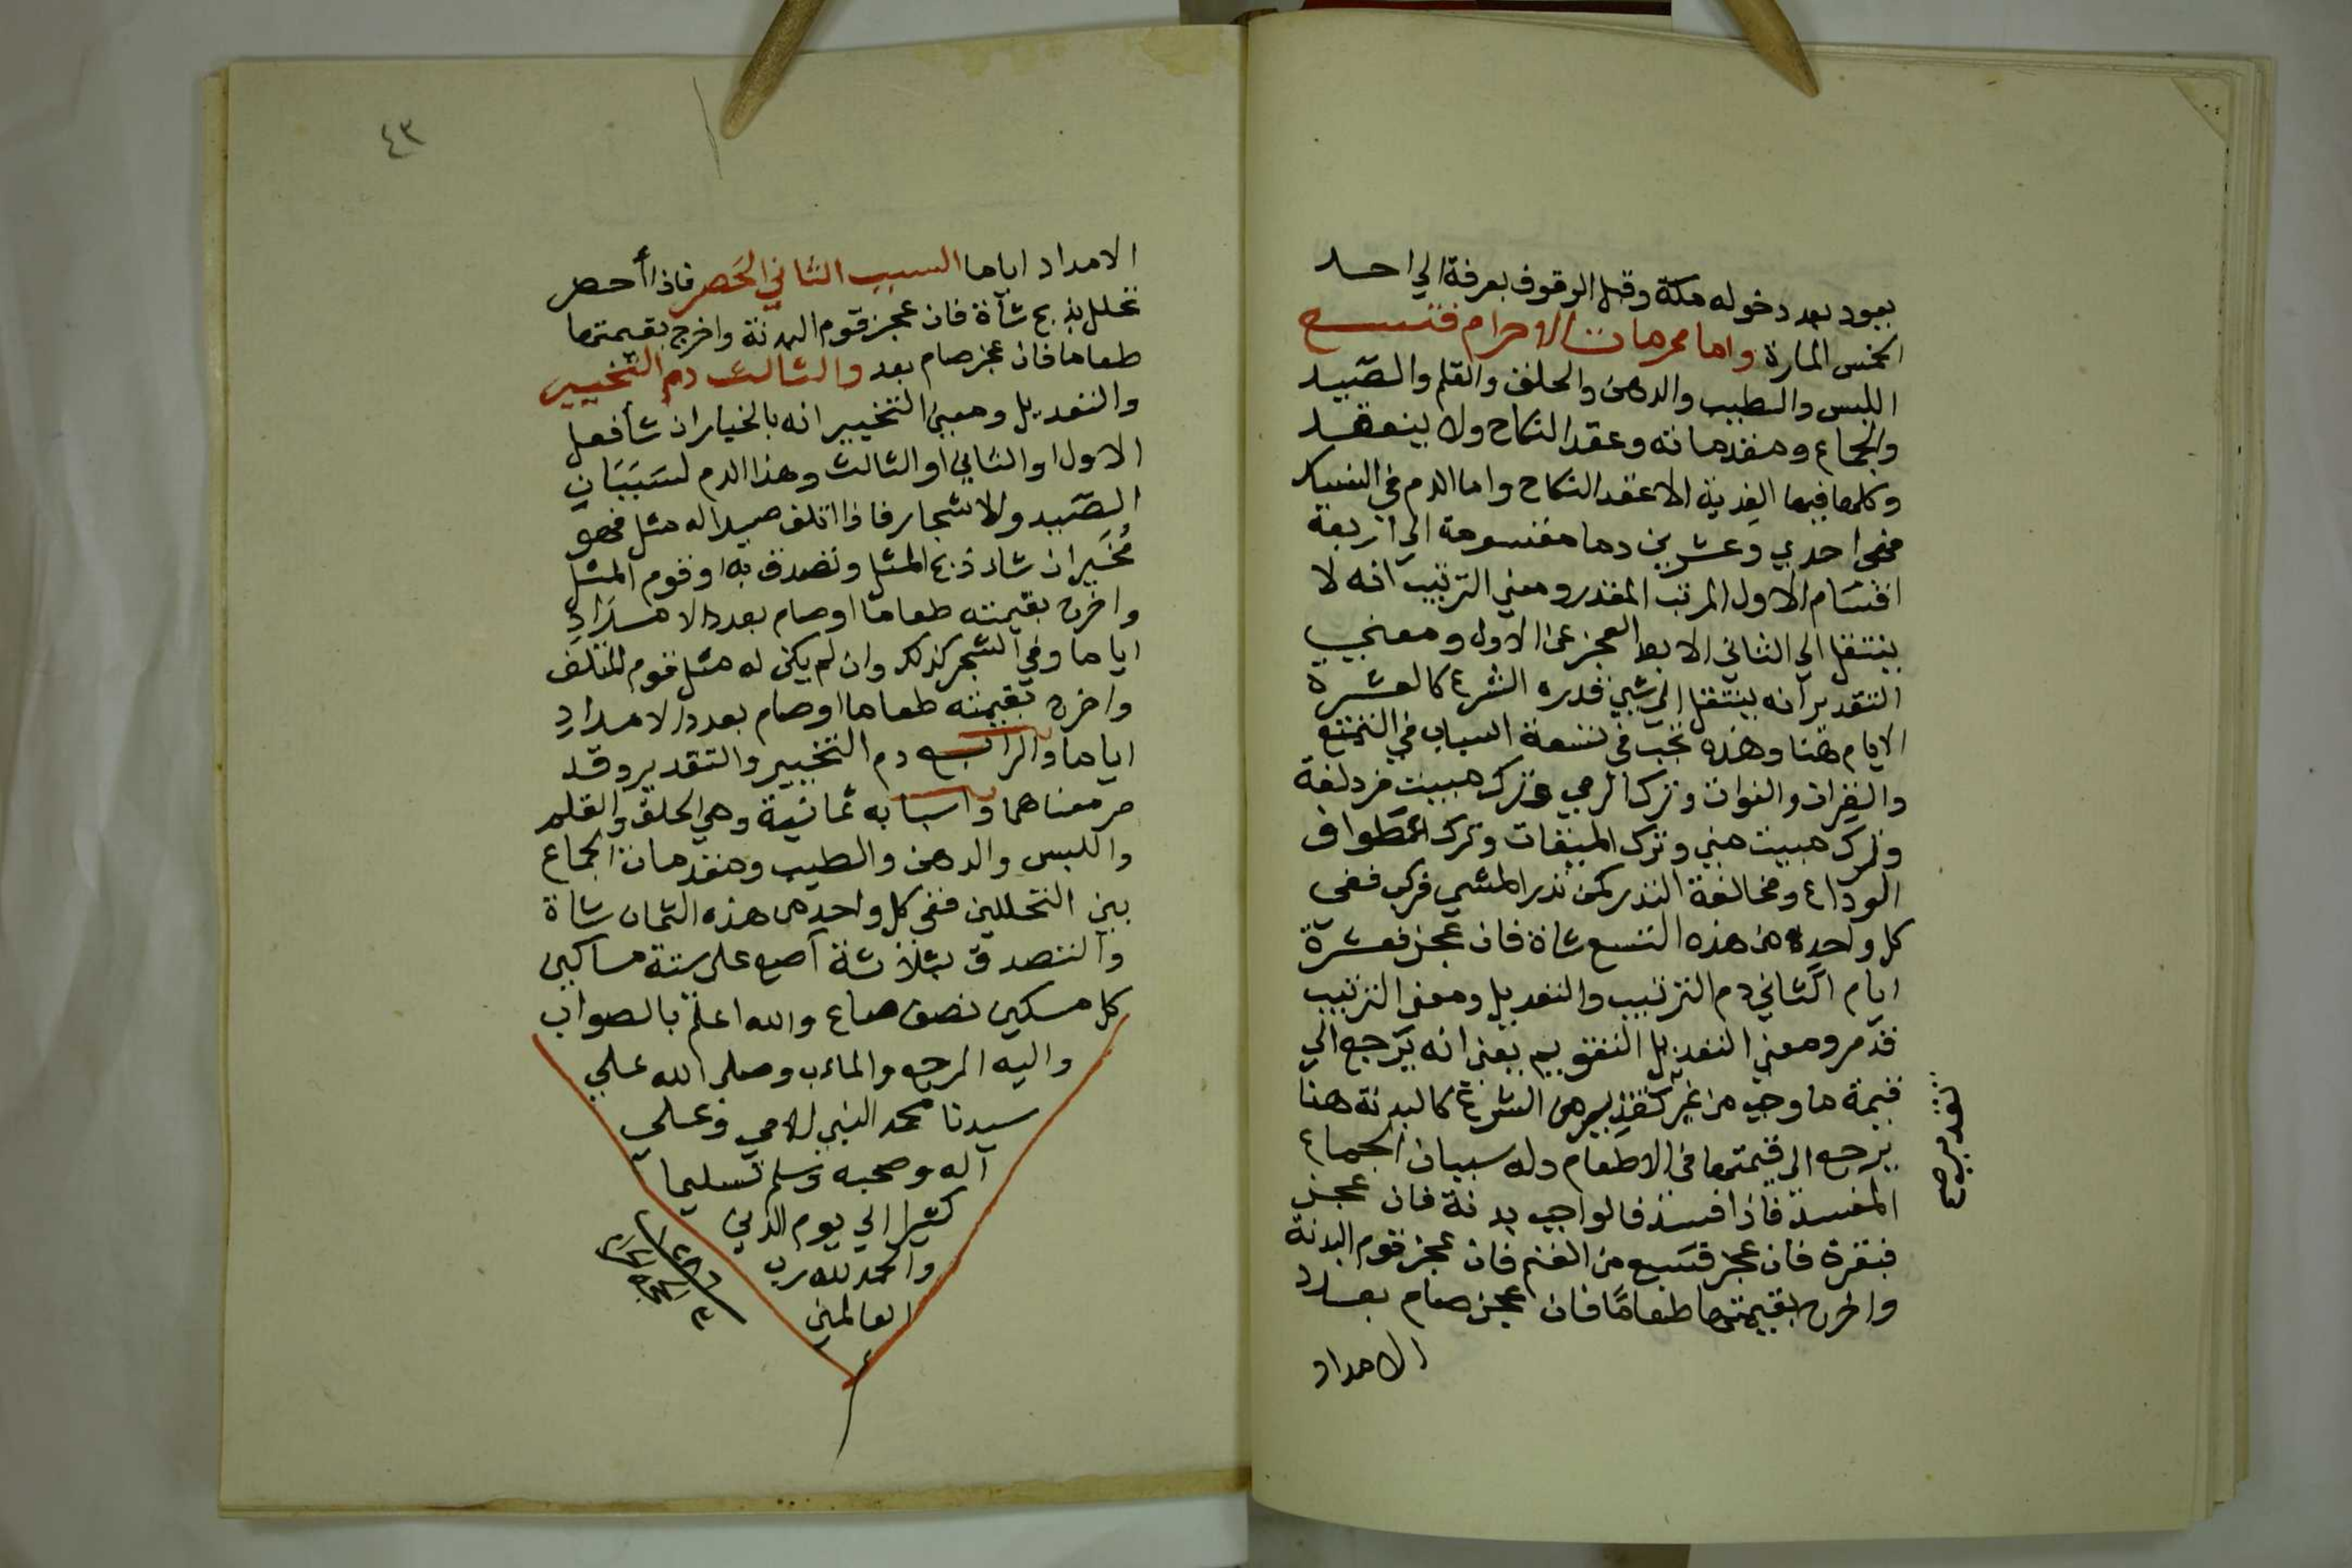 يعود بعد دخوله مكة وقبل الوقوف بعرفة الي احد
الخمس المارة واما محرمات الاحرام فتسع
اللبس والطيب والدهن والحلق والقلم والصيد
والجماع ومقدماته وعقد النكاح ولا ينعقد
وكلها فيها الفدية الا عقد النكاح واما الدم في النسك
فهي احدي وعشرين دما مقسومة الي اربعة
اقسام الاول المرتب المقدر ومعني الترتيب انه لا
ينتقل الي الثاني الا بعد العجز عن الاول ومعني
التقدير انه ينتقل الي شيئ قدره الشرع كالعشرة
الايام هنا وهذه تجب في تسعة اسباب في التمتع
والقران والفوات وترك الرمي وترك مبيت مزدلفة
وترك مبيت مني وترك الميقات وترك الطواف
الوداع ومخالفة النذر كمن نذر المشي فركب ففي
كل واحدة من هذه التسع شاة فان عجز فعشرة
ايام الثاني دم الترتيب والتعديل ومعنى الترتيب
قد مر ومعني التعديل التقويم بمعنى انه يرجع الي
قيمة ما وجب من غير تقدير من الشرع كالبدنة هنا
تقدير صح
يرجع الى قيمتها في الاطعام وله سببان الجماع
المفسد فاذا افسد فالواجب بدنة فان عجز
فبقرة فان عجز فسبع من الغنم فان عجز قوم البدنة
واخرج بقيمتها طعامًا فان عجز صام بعدد
الامداد
٤٣
الامداد اياما السبب الثاني الحَصر فاذا أحصر
تحلل بذبح شأة فان عجز قوم البدنة واخرج بقيمتها
طعاما فان عجز صام بعد والثالث دم التخيير
والتعديل ومعني التخيير انه بالخيار ان شأ فعل
الاول او الثاني او الثالث وهذا الدم لسَبَبَان
الصيد والاشجار فاذا اتلف صيدا له مثل فهو
مُخَير ان شاء ذبح المثل وتصدق به او قوم المثل
واخرج بقيمته طعاما او صام بعدد الامدَادِ
اياما وفي الشجر كذلك وان لم يكن له مثل قوم المتلف
واخرج بقيمته طعاما او صام بعدد الامدادِ
اياما والرابع دم التخيير والتقدير وقد
مر معناهما واسبابه ثمانية وهي الحلق والقلم
واللبس والدهن والطيب ومقدمات الجماع
بين التحللين ففي كل واحد من هذه الثمان شاة
والتصدق بثلاثة آصع على ستة مساكين
كل مسكين نصف صاع والله اعلم بالصواب
واليه المرجع والمائب وصلى الله علي
سيدنا محمد النبي الامي وعلي
آله وصحبه وسلم تسليما
كثيرا الي يوم الدين
والحمد لله رب
العالمين
١٢٨٦